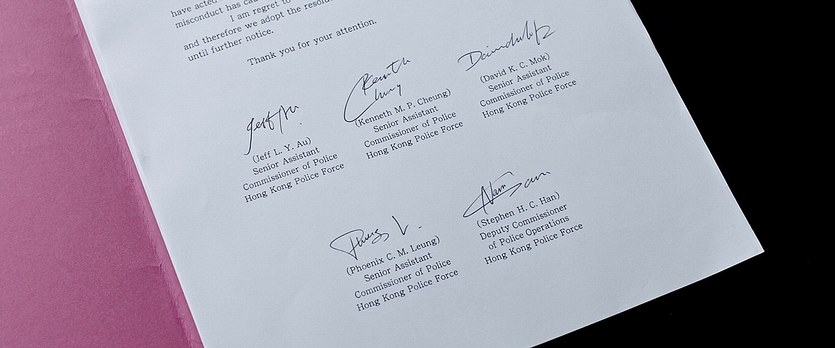 have acted
misconduct has ca
I am regret to
and therefore we adopt the resolu
until further notice.
Thank you for your attention.
Jeff Au
(Jeff L. Y. Au)
Senior Assistant
Commissioner of Police
Hong Kong Police Force
Kenneth
Chung
(Kenneth M. P. Cheung)
Senior Assistant
Commissioner of Police
Hong Kong Police Force
(David K. C. Mok)
Senior Assistant
Commissioner of Police
Hong Kong Police Force
(Phoenix C. M. Leung)
Senior Assistant
Commissioner of Police
Hong Kong Police Force
(Stephen H. C. Han)
Deputy Commissioner
of Police Operations
Hong Kong Police Force